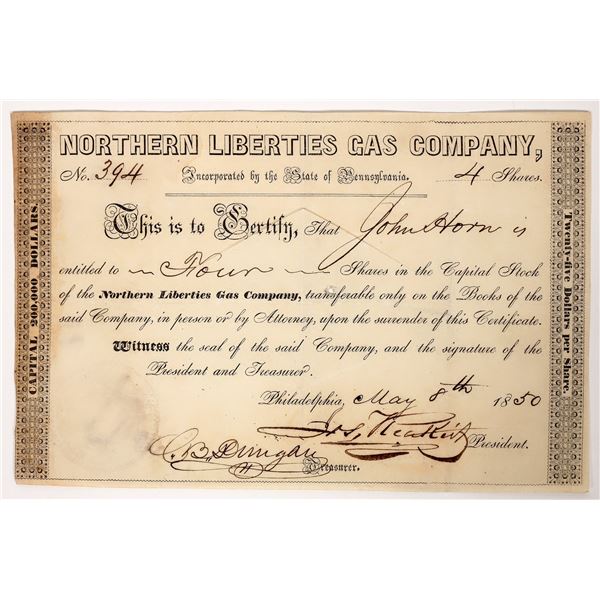 NORTHERN LIBERTIES GAS COMPANY,
No. 394 Incorporated by the State of Pennsylvania. 4 Shares.
This is to Certify, That John Horn is
entitled to Four Shares in the Capital Stock
of the Northern Liberties Gas Company, transferable only on the Books of the
said Company, in person or by Attorney, upon the surrender of this Certificate.
Witness the seal of the said Company, and the signature of the
President and Treasurer.
Philadelphia, May 8th 1850
President.
C. B. Dungan
Treasurer.
CAPITAL 200,000 DOLLARS.
Twenty-five Dollars per Share.